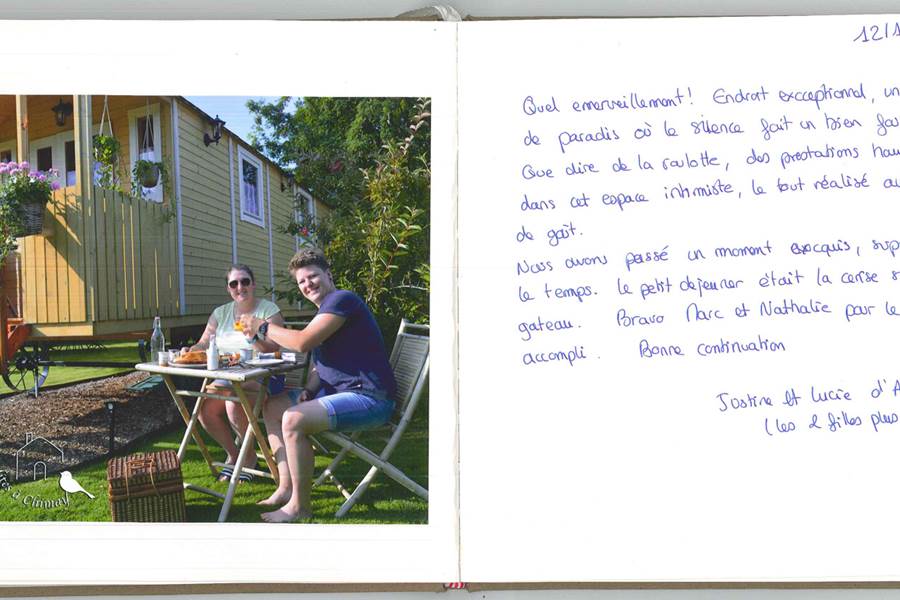 12/1
Quel emerveillement! Endroit exceptionnel, un
de paradis où le silence fait un bien fou
Que dire de la roulotte, des prestations hau
dans cet espace intimiste, le tout réalisé au
de goût.
Nous avons passé un moment exquis, susp
le temps. Le petit dejeuner était la cerise s
gateau. Bravo Marc et Nathalie pour le
accompli. Bonne continuation
Justine et Lucie d'A
(les 2 filles plus
à Chimay